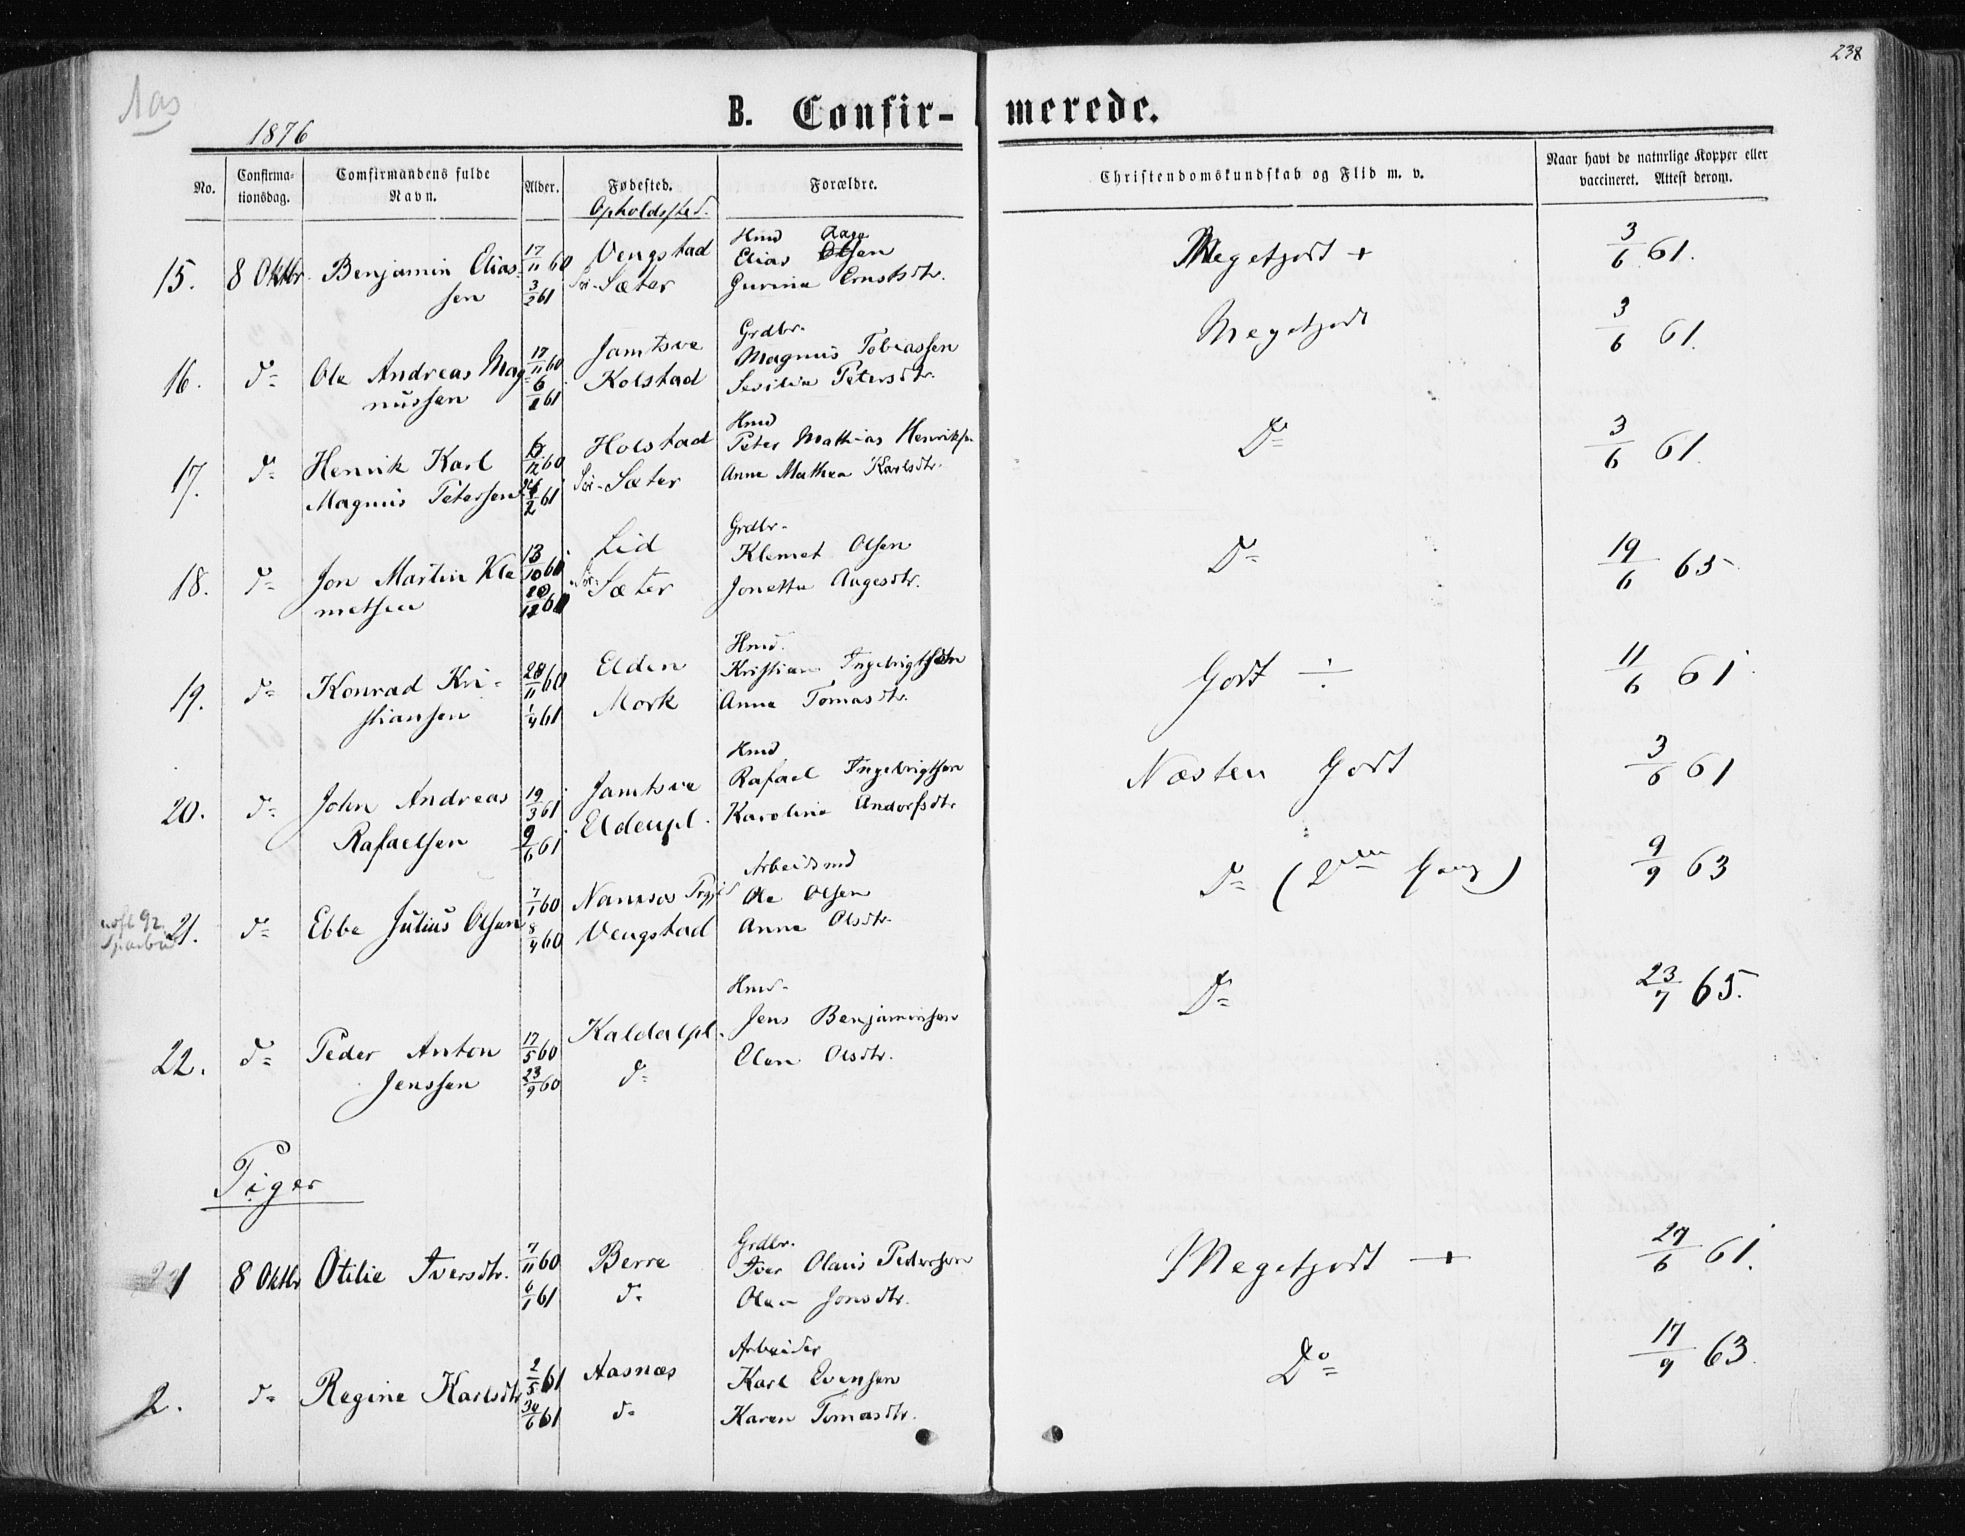 238
Aas
1876
B. Confir- merede.
No.
Confirma-
tionsdag.
Comfirmandens fulde
Navn.
Alder.
Fødested.
Opholdssted.
Forældre.
Christendomskundskab og Flid m. v.
Naar havt de naturlige Kopper eller
vaccineret. Attest derom.
15. 8 Oktbr. Benjamin Elias-
sen
17/11 60
3/2 61
Vengstad
Sør-Sæter
Hmd Aage
Elias Olsen
Gurina Ernstsdtr.
Megetgodt +
3/6 61.
16. d= Ole Andreas Mag-
nussen
17/11 60
6/1 61
Jamtsve
Kolstad
Grdbr.
Magnus Tobiassen
Sevilia Petersdtr.
Megetgodt
3/6 61.
17. d= Henrik Karl
Magnus Petersen
/12 60
/2 61
Holstad
Sør-Sæter
Hmd
Peter Mathias Henriks.
Anne Mathea Karlsdtr.
D=
3/6 61.
18. d= Jon Martin Kle
metsen
13/10 60
Lid
Sør-Sæter
Grdbr.
Klemet Olsen
Jonetta Aagesdtr.
D=
19/6 65
19. d= Konrad Kri-
stiansen
28/11 60
1/4 61
Elden
Mork
Hmd.
Kristian Ingebrigtsen
Anna Tomasdtr.
Godt ÷
11/6 61.
20. d= John Andreas
Rafaelsen
19/3 61
9/6 61
Jamtsve
Eldenpl.
Hmd
Rafael Ingebrigtsen
Karoline Andorfsdtr
Næsten Godt
3/6 61
21. d= Ebbe Julius Olsen
7/1 60
8/4 60
Namsos
Vengstad
Arbeidsmd
Ole Olsen
Anne Olsdtr.
D= (2den Gang)
9/9 63
22. d= Peder Anton
Jenssen
17/5 60
23/9 60
Kaldalpl.
d=
Hmd.
Jens Benjaminsen
Elen Olsdtr.
D=
23/7 65.
Piger
1 8 Oktbr Otilie Iversdtr.
7/11 60
6/1 61
Berre
d=
Grdbr.
Iver Olaus Pedersen
Olea Jonsdtr.
Megetgodt +
27/6 61.
2. d= Regine Karlsdtr
2/5 61
30/6 61
Aasnæs
d=
Arbeider
Karl Evensen
Karen Tomasdtr.
Do=
17/9 63.